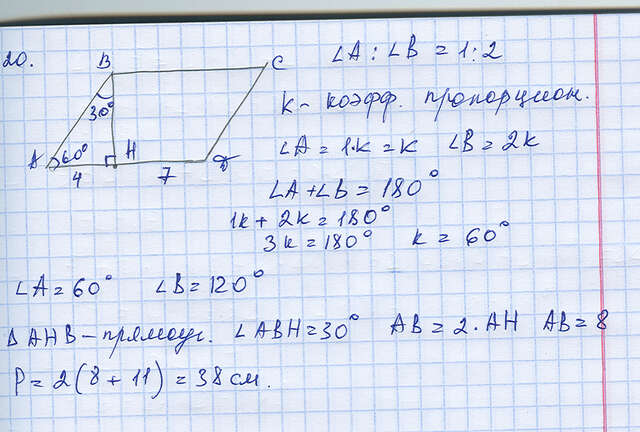 20.
B C
30°
A 60° H D
4 7
∠A : ∠B = 1 : 2
к - коэфф. пропорцион.
∠A = 1·к = к ∠B = 2к
∠A + ∠B = 180°
1к + 2к = 180°
3к = 180° к = 60°
∠A = 60° ∠B = 120°
Δ AHB - прямоуг. ∠ABH = 30° AB = 2·AH AB = 8
P = 2(8 + 11) = 38 см.